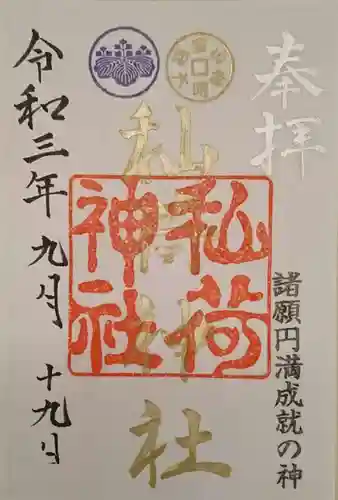 奉拝
諸願円満成就の神
荷神社
荷
神社
令和三年九月十九日